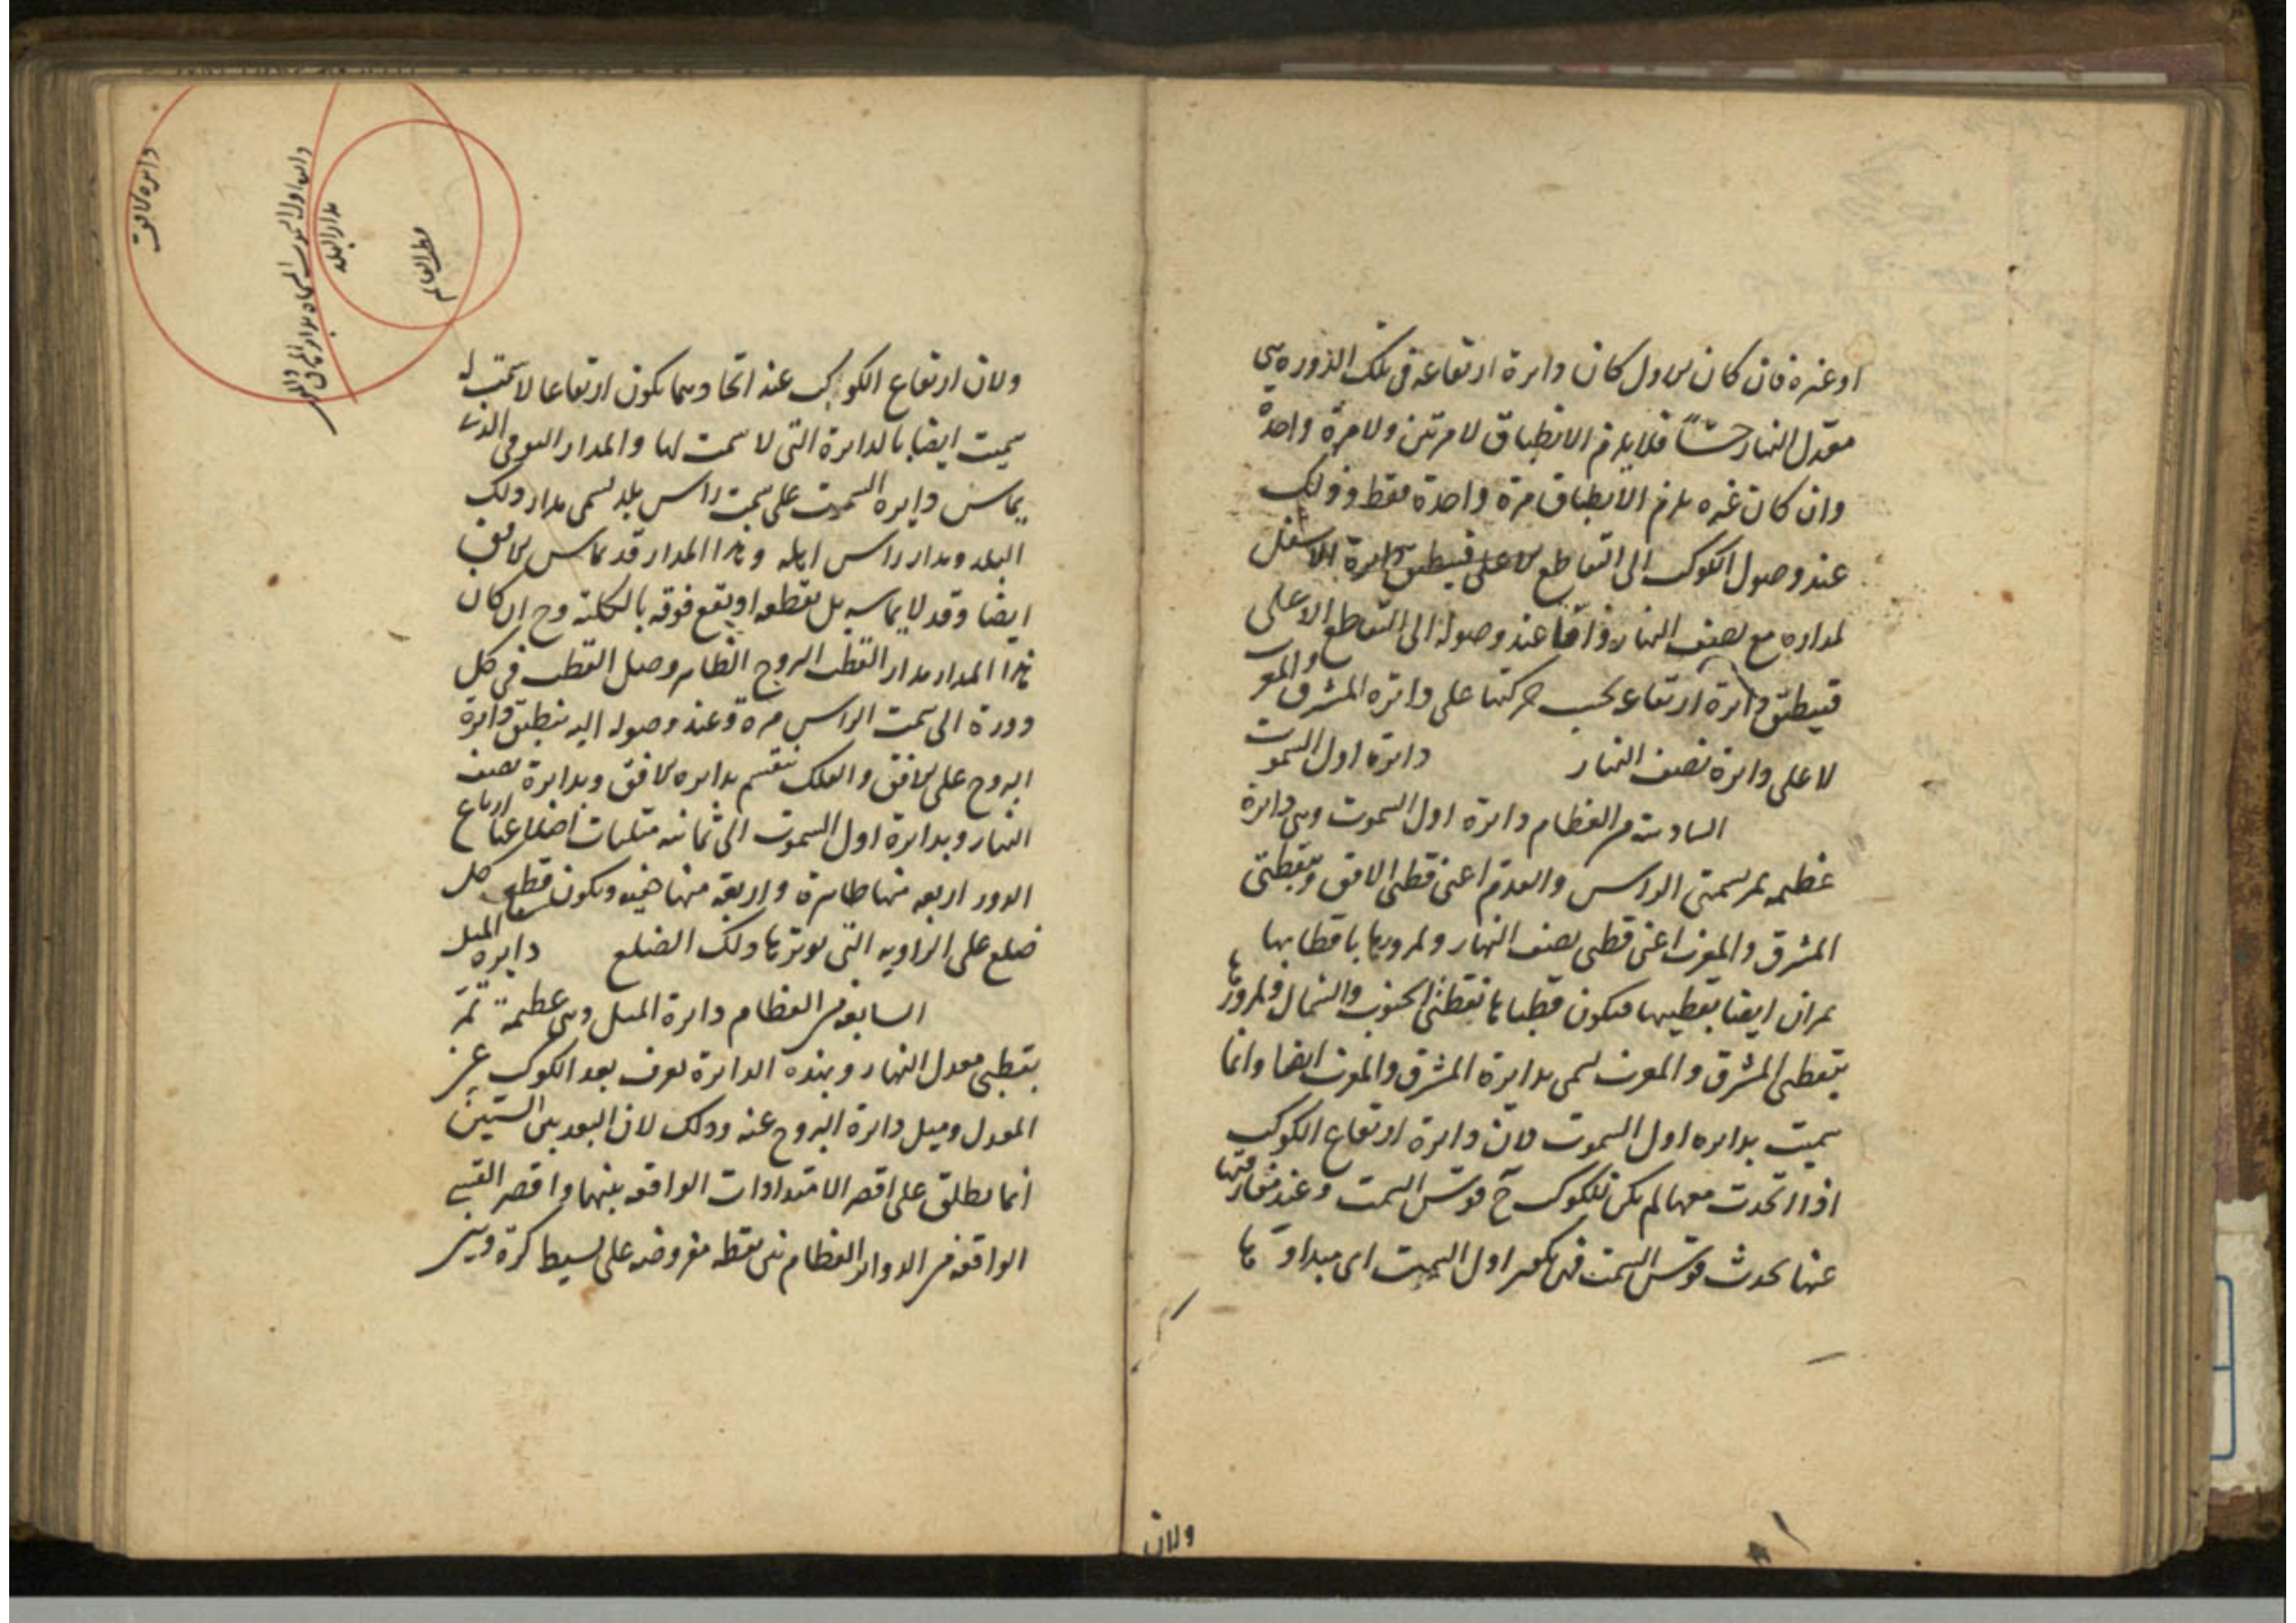 او غيره فان كان الاول كان دايرة ارتفاعه فى تلك الدورة هى
معدل النهار حسًّا فلا يلزم الانطباق لا مرتين ولا مرة واحدة
وان كان غيره يلزم الانطباق مرة واحدة فقط وذلك
عند وصول الكوكب الى التقاطع الاسفل
لمداره مع نصف النهار واما عند وصوله الى التقاطع الاعلى
فينطبق دايرة ارتفاع بحسب حركتها على دايرة المشرق والمغرب
لا على دايرة نصف النهار دايرة اول السموت
السادسة من العظام دايرة اول السموت وهى دايرة
عظيمه تمر بسمتى الراس والقدم اعنى قطبى الافق وبقطتى
المشرق والمغرب اعنى قطبى نصف النهار ولمرورها باقطابها
يمران ايضا بقطبيها فيكون قطباها نقطتى الجنوب والشمال ولمرورها
بنقطتى المشرق والمغرب تسمى بدايرة المشرق والمغرب ايضا وانما
سميت بدايره اول السموت لان دايرة ارتفاع الكوكب
اذا اتحدت معها لم يكن للكوكب ح قوس السمت وعند مفارقتها
عنها يحدث قوس السمت فهى اول السمت اى مبداوها
ولان
ولان ارتفاع الكوكب عند اتحادهما يكون ارتفاعا لا سمت له
سميت ايضا بالدايرة التى لا سمت لها والمدار اليومى الذى
يماس دايره السموت على سمت راس بلد تسمى مدار ذلك
البلد ومدار راس اهله وهذا المدار قد يماس الافق
ايضا وقد لا يماسه بل يقطعه او يقع فوقه بالكلية وح ان كان
هذا المدار مدار القطب البروج الظاهر وصل القطب فى كل
دورة الى سمت الراس مرة وعند وصوله اليه ينطبق دايرة
البروج على الافق والفلك ينقسم بدايره الافق وبدايرة نصف
النهار وبدايرة اول السموت الى ثمانيه مثلثات اضلاعها ارباع
الدور اربعه منها ظاهرة واربعة منها خفيه ويكون قطب كل
ضلع على الزاويه التى يوترها ذلك الضلع دايره الميل
السابعه من العظام دايرة الميل وهى عظيمة تمرّ
بقطبى معدل النهار وبهذه الدائرة يعرف بعد الكوكب عن
المعدل وميل دائرة البروج عنه وذلك لان البعد بين الشيئين
انما يطلق على اقصر الامتدادات الواقعه بينهما واقصر القسى
الواقعه من الدوائر العظام بين نقطه مفروضه على بسيط كرة وبين
دايره الافق
دايرة اول السموت المماسه لمدار
مدار البلد
قطب العالم